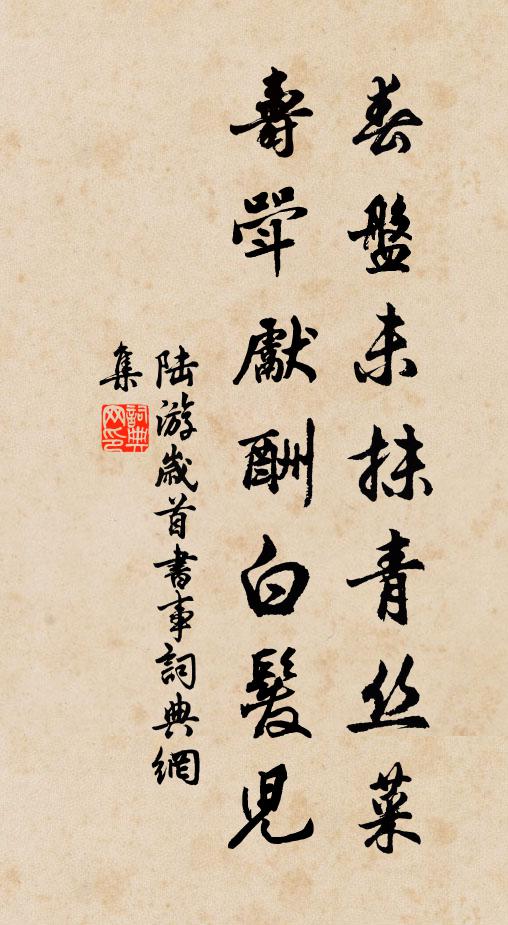 春盤未抹青丝菜
壽斝獻酬白髮兒
陸游歲首書事詞典網
集
詞典
网印